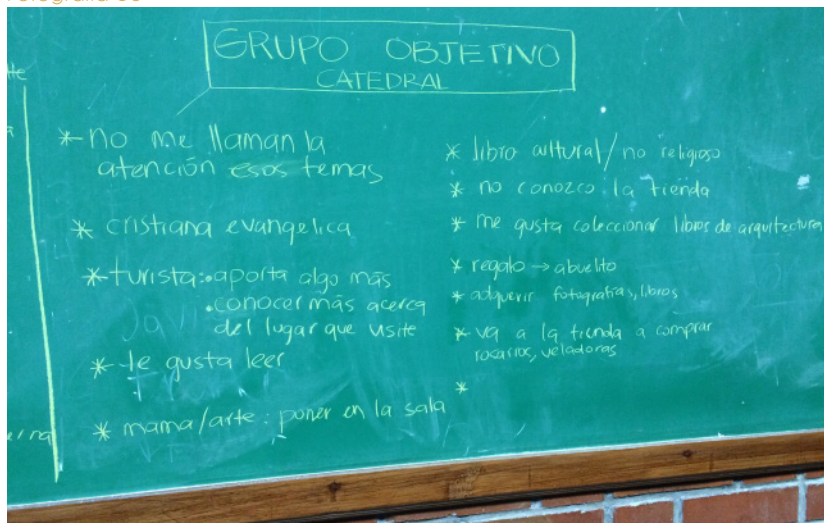 GRUPO OBJETIVO
CATEDRAL
* no me llaman la
atención esos temas
* cristiana evangelica
* turista: • aporta algo más
• conocer más acerca
del lugar que visite
* le gusta leer
* mama/arte: poner en la sala
* libro cultural/no religioso
* no conozco la tienda
* me gusta coleccionar libros de arquitectura
* regalo → abuelito
* adquerir fotografias, libros
* va a la tienda a comprar
rosarios, veladoras
*